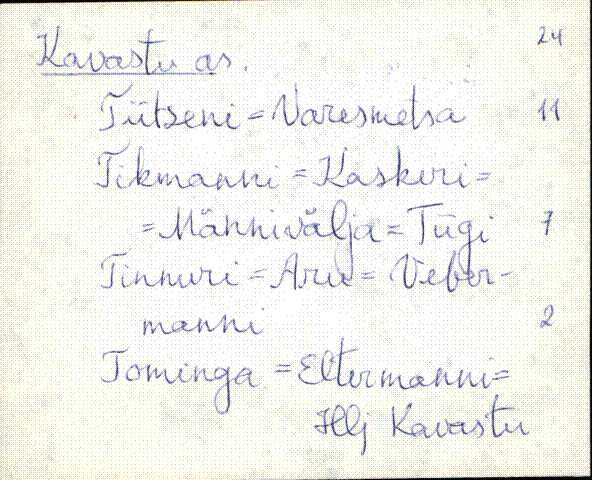 24
Kavastu as.
Tiitseni = Varesmetsa 11
Tikmanni = Kaskeri =
= Männivälja = Tiigi 7
Tinnuri = Aru = Veber-
manni 2
Tominga = Eltermanni =
Hlj Kavastu